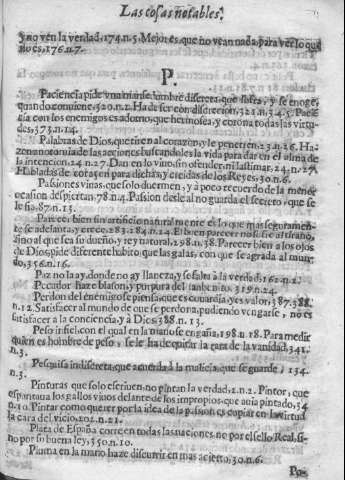 Las cosas notables.
y no vèn la verdad, 174.n.5. Mejor es, que no vean nada, para ver lo que
no es, 176.n.7.
P.
Paciencia pide vna hombre discreta, que sufra, y se enoge,
quando conuiene, 320.n.2. Ha de ser con discrecion, 321.n.3.4.5. Pacie
cia con los enemigos es adorno, que hermosea, y corona todas las virtu-
des, 373.n.14.
Palabras de Dios, que tiren al coraçon, y le penetren, 23.n.26. Ha-
zen anotomia de las acciones buscandoles la vida para dar en el alma de
la intencion, 24.n.27. Dan en lo viuo sin ofender, ni lastimar, 24.n.27.
Habladas de para dichas, y creidas de los Reyes, 30.n.6.
Passiones viuas, que solo duermen, y à poco recuerdo de la menor
ocasion despiertan, 78.n.4. Passion desleal no guarda el secreto, que se
le fia, 87.n.13.
Parecer bien sin artificio natural mente es lo que mas seguramen-
te se adelanta, y crece, 283.284.n.24. El bien parecer no se fie al estraño,
sino al que sea su dueño, y rey natural, 298.n.38. Parecer bien a los ojos
de Dios, pide diferente habito que las galas, con que se agrada al mun-
do, 356.n.16.
Paz no la ay, donde no ay llaneza, y se falta à la verdad, 162.n.2.
Pecador haze blason, y purpura del sanbenito, 319.n.24.
Perdon del enemigo se piensa que es couardia, y es valor, 387.388.
n.12. Satisfacer al mundo de que se perdona, pudiendo vengarse, no es
satisfacer a la conciencia, y à Dios, 388.n.13.
Peso infiel, con el qual en la mano se engaña, 198.n.18. Para medir
quien es hombre de peso, se le ha de quitar la cara de la vanidad, 341.
n.3.
Pesquisa indiscreta, que acuerda à la malicia, que se guarde, 134.
n.3.
Pinturas que solo escriuen no pintan la verdad, 2.n.2. Pintor, que
espantaua los gallos viuos delante de los impropios, que auia pintado, 54
n.10. Pintar como querer por la idea de la passion es copiar en la virtud
la cara del vicio, 202.n.21.
Plata de España corre en todas las naciones no por el sello Real, si-
no por su buena ley, 350.n.10.
Pluma en la mano haze discurrir en mas acierto, 30.n.6.
Po-